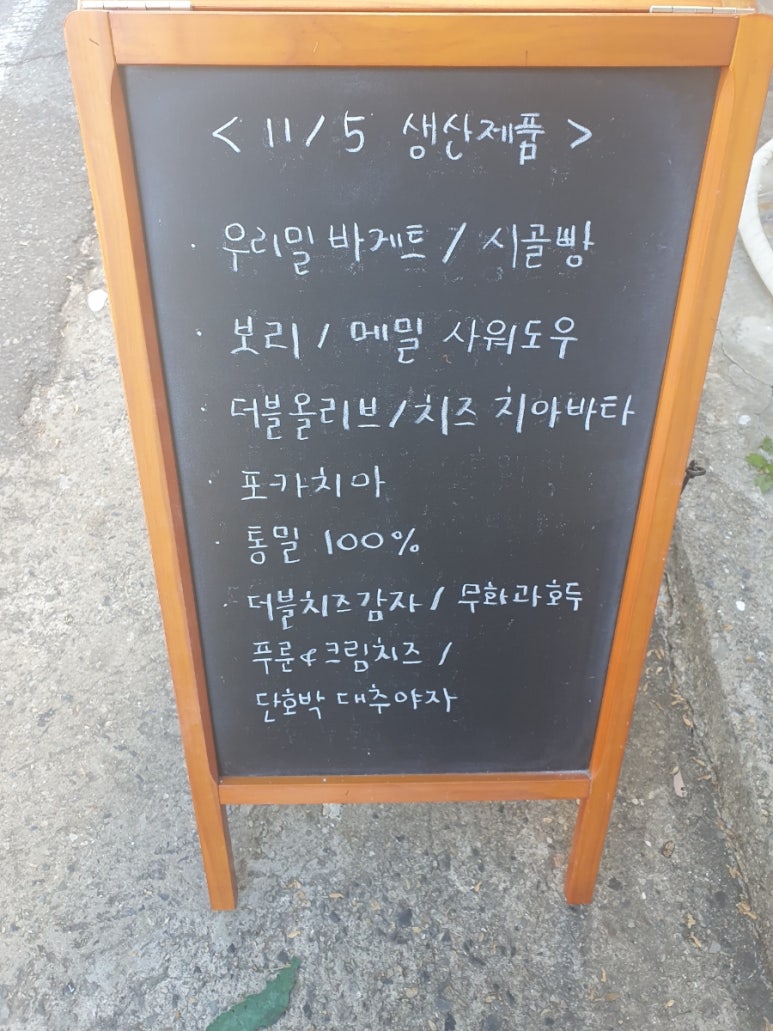 < 11/5 생산제품 >
· 우리밀 바게트 / 시골빵
· 보리 / 메밀 사워도우
· 더블올리브/치즈 치아바타
· 포카치아
· 통밀 100%
· 더블치즈감자/ 무화과호두
푸룬&크림치즈 /
단호박 대추야자